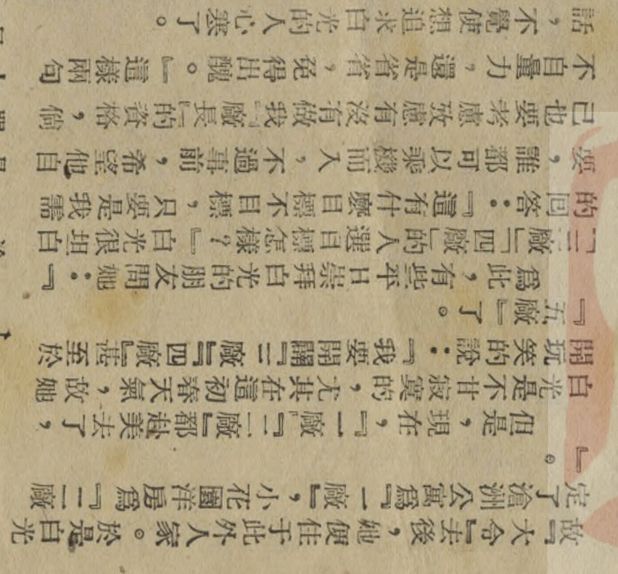 故『大令』去後，她便住于此外人家。於是白光
定了滄洲公寓爲『一廠』，小花園洋房爲『二廠
』。
但是，現在，『一廠』『二廠』都赴美去了，
白光是不甘寂寞的，尤其在這初春天氣，故她
開玩笑的說：『我要開闢『三廠』『四廠』甚至於
『五廠』了。
爲此，有些平日崇拜白光的朋友問她：『
『三廠』『四廠』的人選目標怎樣？』白光很坦白
的回答：『這有什麼目標不目標，只要是我需
要，誰都可以乘機而入，不過事前，希望他自
己也要考慮攷慮有沒有做我『廠長』的資格，倘
不自量力，還是省省，免得出醜。』這樣兩句
話，不覺使想追求白光的人心寒了。